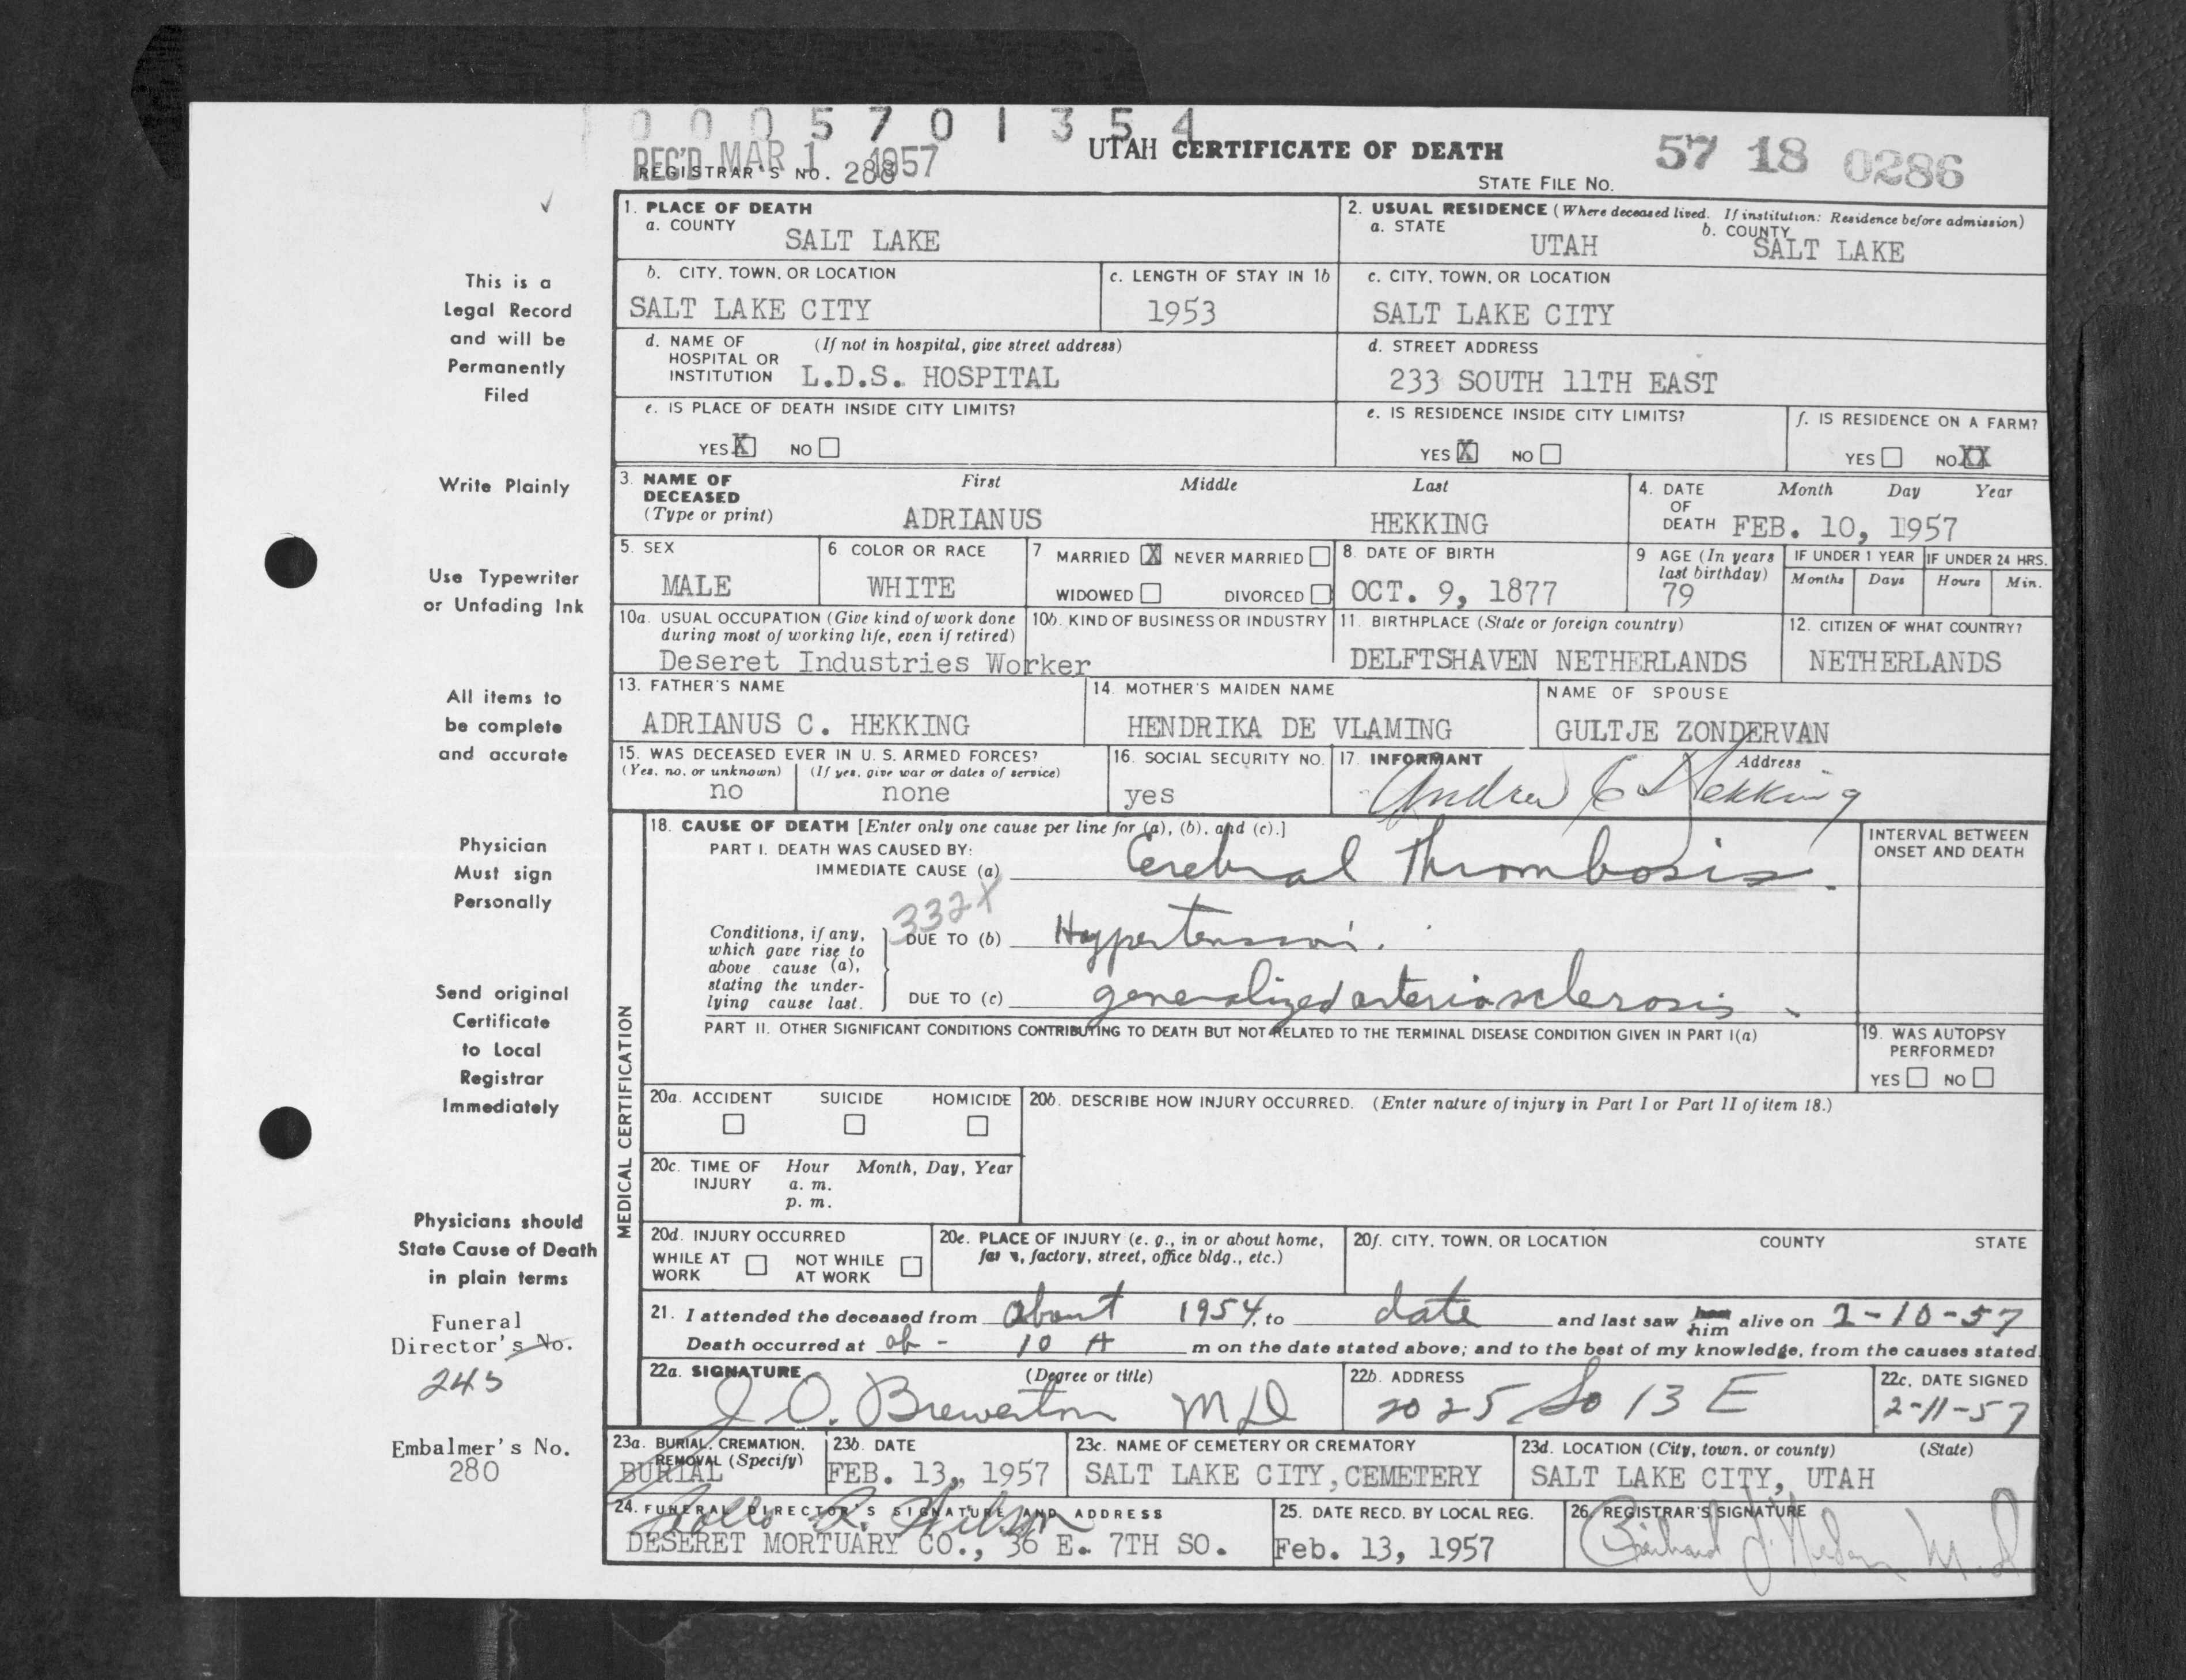 0005701354
REC'D MAR 1 1957
UTAH CERTIFICATE OF DEATH
REGISTRAR'S NO. 288
STATE FILE NO. 57 18 0286
1. PLACE OF DEATH
a. COUNTY
SALT LAKE
2. USUAL RESIDENCE (Where deceased lived. If institution: Residence before admission)
a. STATE
UTAH
b. COUNTY
SALT LAKE
b. CITY, TOWN, OR LOCATION
SALT LAKE CITY
c. LENGTH OF STAY IN 1b
1953
c. CITY, TOWN, OR LOCATION
SALT LAKE CITY
d. NAME OF HOSPITAL OR INSTITUTION
(If not in hospital, give street address)
L.D.S. HOSPITAL
d. STREET ADDRESS
233 SOUTH 11TH EAST
e. IS PLACE OF DEATH INSIDE CITY LIMITS?
YES X NO
e. IS RESIDENCE INSIDE CITY LIMITS?
YES X NO
f. IS RESIDENCE ON A FARM?
YES NO XX
3. NAME OF DECEASED
(Type or print)
First Middle Last
ADRIANUS HEKKING
4. DATE OF DEATH
Month Day Year
FEB. 10, 1957
5. SEX
MALE
6. COLOR OR RACE
WHITE
7 MARRIED X NEVER MARRIED
WIDOWED DIVORCED
8. DATE OF BIRTH
OCT. 9, 1877
9 AGE (In years last birthday)
79
IF UNDER 1 YEAR
Months Days
IF UNDER 24 HRS.
Hours Min.
10a. USUAL OCCUPATION (Give kind of work done during most of working life, even if retired)
Deseret Industries Worker
10b. KIND OF BUSINESS OR INDUSTRY
11. BIRTHPLACE (State or foreign country)
DELFTSHAVEN NETHERLANDS
12. CITIZEN OF WHAT COUNTRY?
NETHERLANDS
13. FATHER'S NAME
ADRIANUS C. HEKKING
14. MOTHER'S MAIDEN NAME
HENDRIKA DE VLAMING
NAME OF SPOUSE
GULTJE ZONDERVAN
15. WAS DECEASED EVER IN U. S. ARMED FORCES?
(Yes, no, or unknown) (If yes, give war or dates of service)
no none
16. SOCIAL SECURITY NO.
yes
17. INFORMANT Address
Andrew C Hekking
MEDICAL CERTIFICATION
18. CAUSE OF DEATH [Enter only one cause per line for (a), (b), and (c).]
PART I. DEATH WAS CAUSED BY:
IMMEDIATE CAUSE (a) Cerebral Thrombosis.
INTERVAL BETWEEN ONSET AND DEATH
332X
Conditions, if any, which gave rise to above cause (a), stating the underlying cause last.
DUE TO (b) Hypertension.
DUE TO (c) generalized arteriosclerosis.
PART II. OTHER SIGNIFICANT CONDITIONS CONTRIBUTING TO DEATH BUT NOT RELATED TO THE TERMINAL DISEASE CONDITION GIVEN IN PART I(a)
19. WAS AUTOPSY PERFORMED?
YES NO
20a. ACCIDENT SUICIDE HOMICIDE
20b. DESCRIBE HOW INJURY OCCURRED. (Enter nature of injury in Part I or Part II of item 18.)
20c. TIME OF INJURY
Hour Month, Day, Year
a. m.
p. m.
20d. INJURY OCCURRED
WHILE AT WORK NOT WHILE AT WORK
20e. PLACE OF INJURY (e. g., in or about home, farm, factory, street, office bldg., etc.)
20f. CITY, TOWN, OR LOCATION COUNTY STATE
21. I attended the deceased from about 1954, to date and last saw her him alive on 2-10-57
Death occurred at ab- 10 A m on the date stated above; and to the best of my knowledge, from the causes stated.
22a. SIGNATURE (Degree or title)
J. O. Brewerton MD
22b. ADDRESS
2025 So 13 E
22c. DATE SIGNED
2-11-57
23a. BURIAL, CREMATION, REMOVAL (Specify)
BURIAL
23b. DATE
FEB. 13, 1957
23c. NAME OF CEMETERY OR CREMATORY
SALT LAKE CITY, CEMETERY
23d. LOCATION (City, town, or county) (State)
SALT LAKE CITY, UTAH
24. FUNERAL DIRECTOR'S SIGNATURE AND ADDRESS
DESERET MORTUARY CO., 36 E. 7TH SO.
25. DATE RECD. BY LOCAL REG.
Feb. 13, 1957
26. REGISTRAR'S SIGNATURE
This is a
Legal Record
and will be
Permanently
Filed
Write Plainly
Use Typewriter
or Unfading Ink
All items to
be complete
and accurate
Physician
Must sign
Personally
Send original
Certificate
to Local
Registrar
Immediately
Physicians should
State Cause of Death
in plain terms
Funeral
Director's No.
245
Embalmer's No.
280